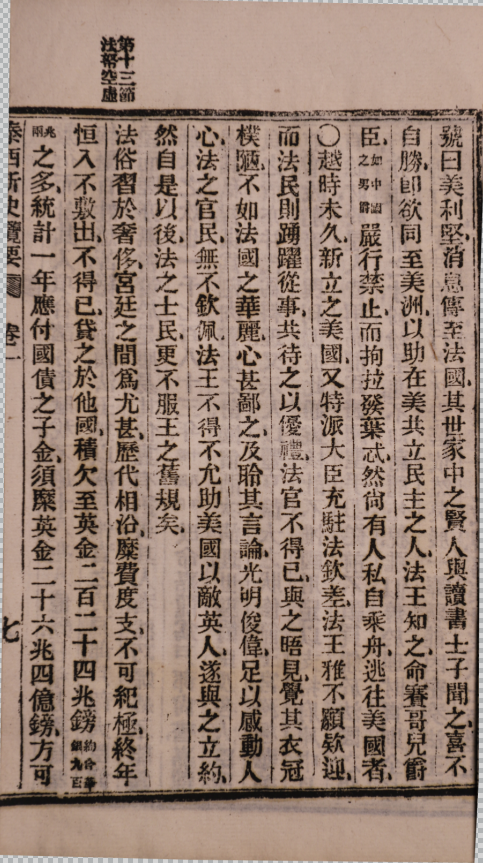 第十三節
法帑空虛
號曰美利堅消息傳至法國其世家中之賢人與讀書士子聞之喜不
自勝卽欲同至美洲以助在美共立民主之人法王知之命賽哥兒爵
臣如中國之男爵嚴行禁止而拘拉發葉忒然尙有人私自乘舟逃往美國者
○越時未久新立之美國又特派大臣充駐法欽差法王雅不願欵迎
而法民則踴躍從事共待之以優禮法官不得已與之晤見覺其衣冠
樸陋不如法國之華麗心甚鄙之及聆其言論光明俊偉足以感動人
心法之官民無不欽佩法王不得不允助美國以敵英人遂與之立約
然自是以後法之士民更不服王之舊規矣
法俗習於奢侈宮廷之間爲尤甚歷代相沿糜費度支不可紀極終年
恒入不敷出不得已貸之於他國積欠至英金二百二十四兆鎊約合華銀九百
兆兩之多統計一年應付國債之子金須糜英金二十六兆四億鎊方可
泰西新史攬要 卷一 七